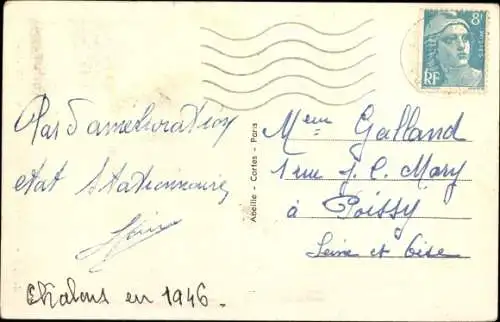 Pas d'amélioration
etat stationnaire
Chalons en 1946.
Abeille - Cartes - Paris
8f
RF
Mme Galland
1 rue J. C. Mary
à Poissy
Seine et Oise